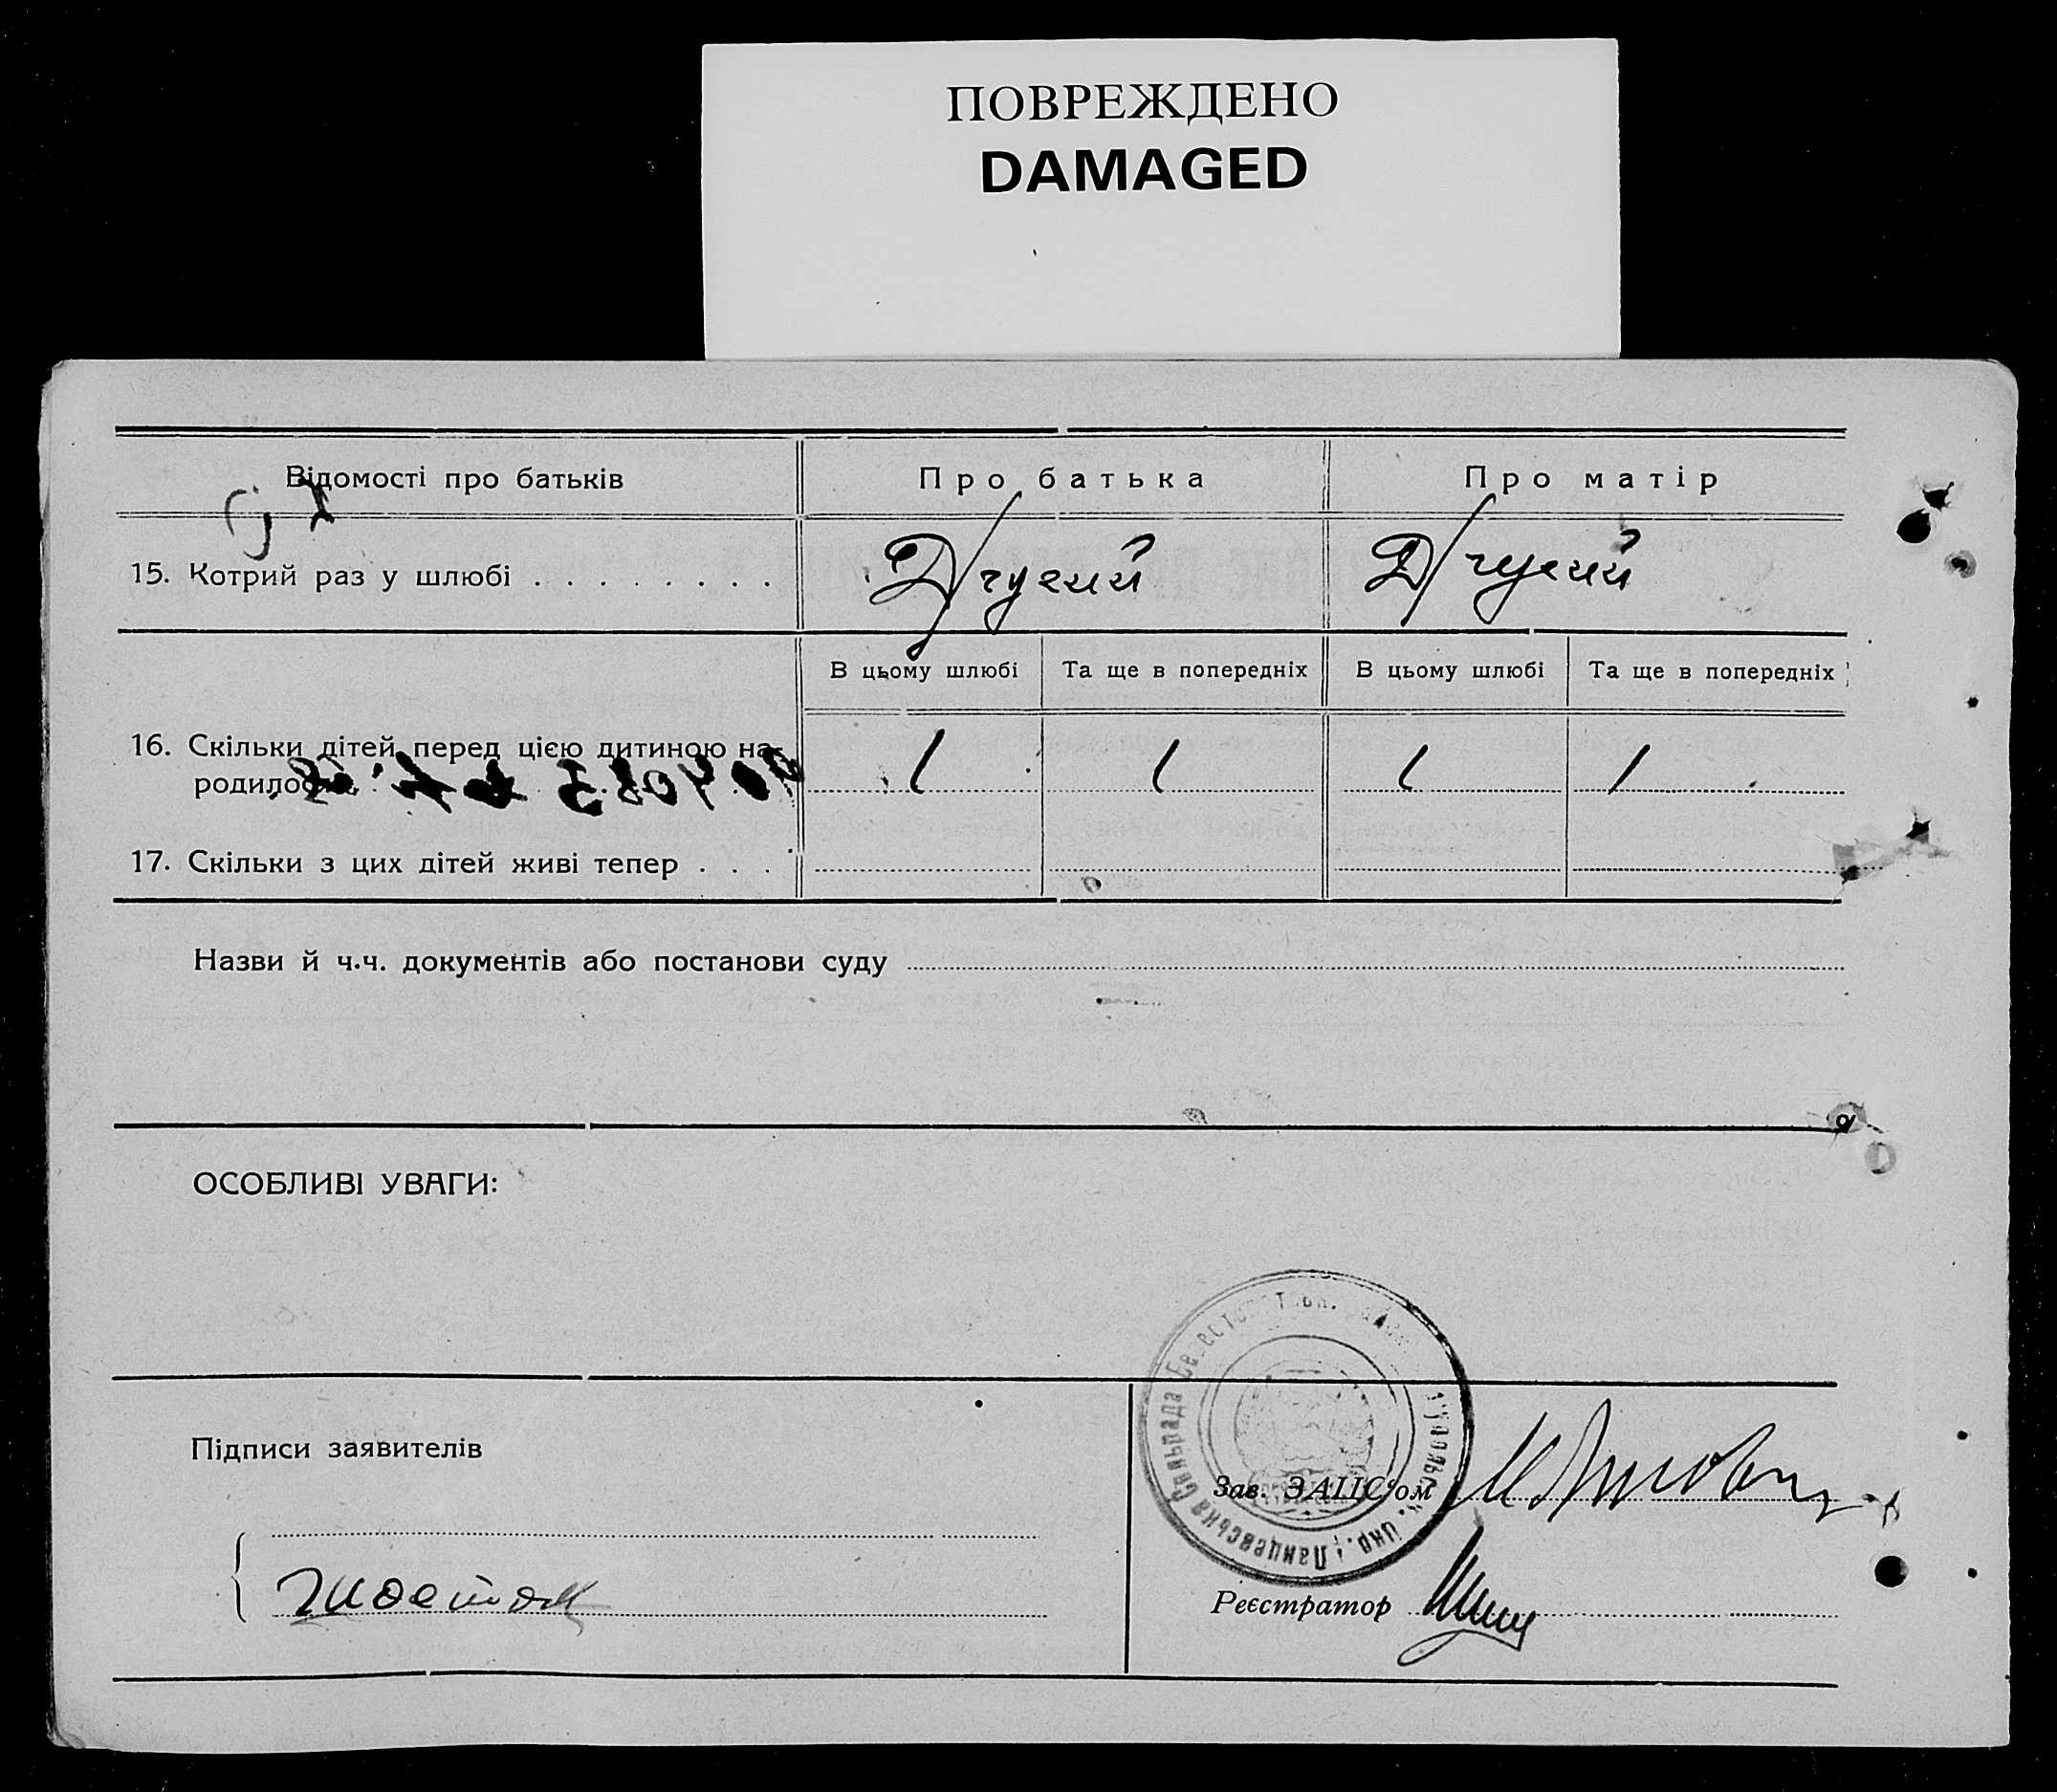 ПОВРЕЖДЕНО
DAMAGED
Відомості про батьків
Про батька
Про матір
15. Котрий раз у шлюбі . . . . . . . .
Другий
Другий
В цьому шлюбі
Та ще в попередніх
В цьому шлюбі
Та ще в попередніх
16. Скільки дітей перед цією дитиною на-
родилося
1
1
1
1
17. Скільки з цих дітей живі тепер . . .
Назви й ч.ч. документів або постанови суду
ОСОБЛИВІ УВАГИ:
Підписи заявителів
Зав. ЗАЦС'ом
Реєстратор
Сільрада